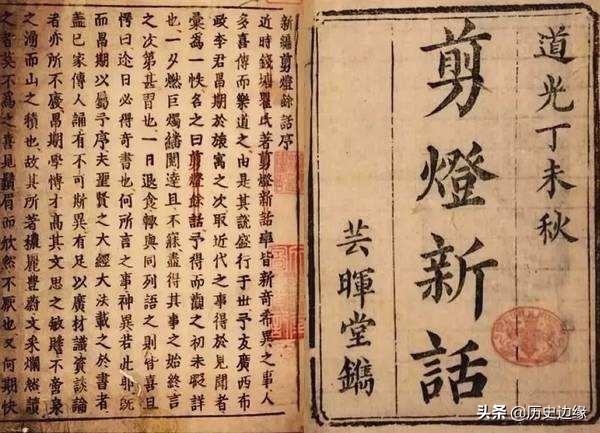 道光丁未秋
剪燈新話
芸暉堂鐫
新編剪燈餘話序
近時錢塘瞿氏著剪燈新話率皆新奇希異之事人
多喜傳而樂道之由是其說盛行于世予友廣西布
政李君昌期於旅寓之次取近代之事得於見聞者
彙為一帙名之曰剪燈餘話予得而觀之初未暇詳
也一夕燃巨燭繙閱達旦不寐盡得其事之始終言
之次第甚習也一日退食輒與同列語之則皆喜且
愕曰途日必得奇書也何所言之事神異若此耶既
而昌期以屬予序夫聖賢之大經大法載之於書者
蓋已家傳人誦有不可斯異有足以廣材識資談論
者亦所不廢昌期學博才高其文思之敏贍不啻泉
之湧而山之積也故其所著穠麗豐蔚文采爛然讀
之者莫不為之喜見鬚眉而欣然不厭也又何期快
头条 @历史边缘